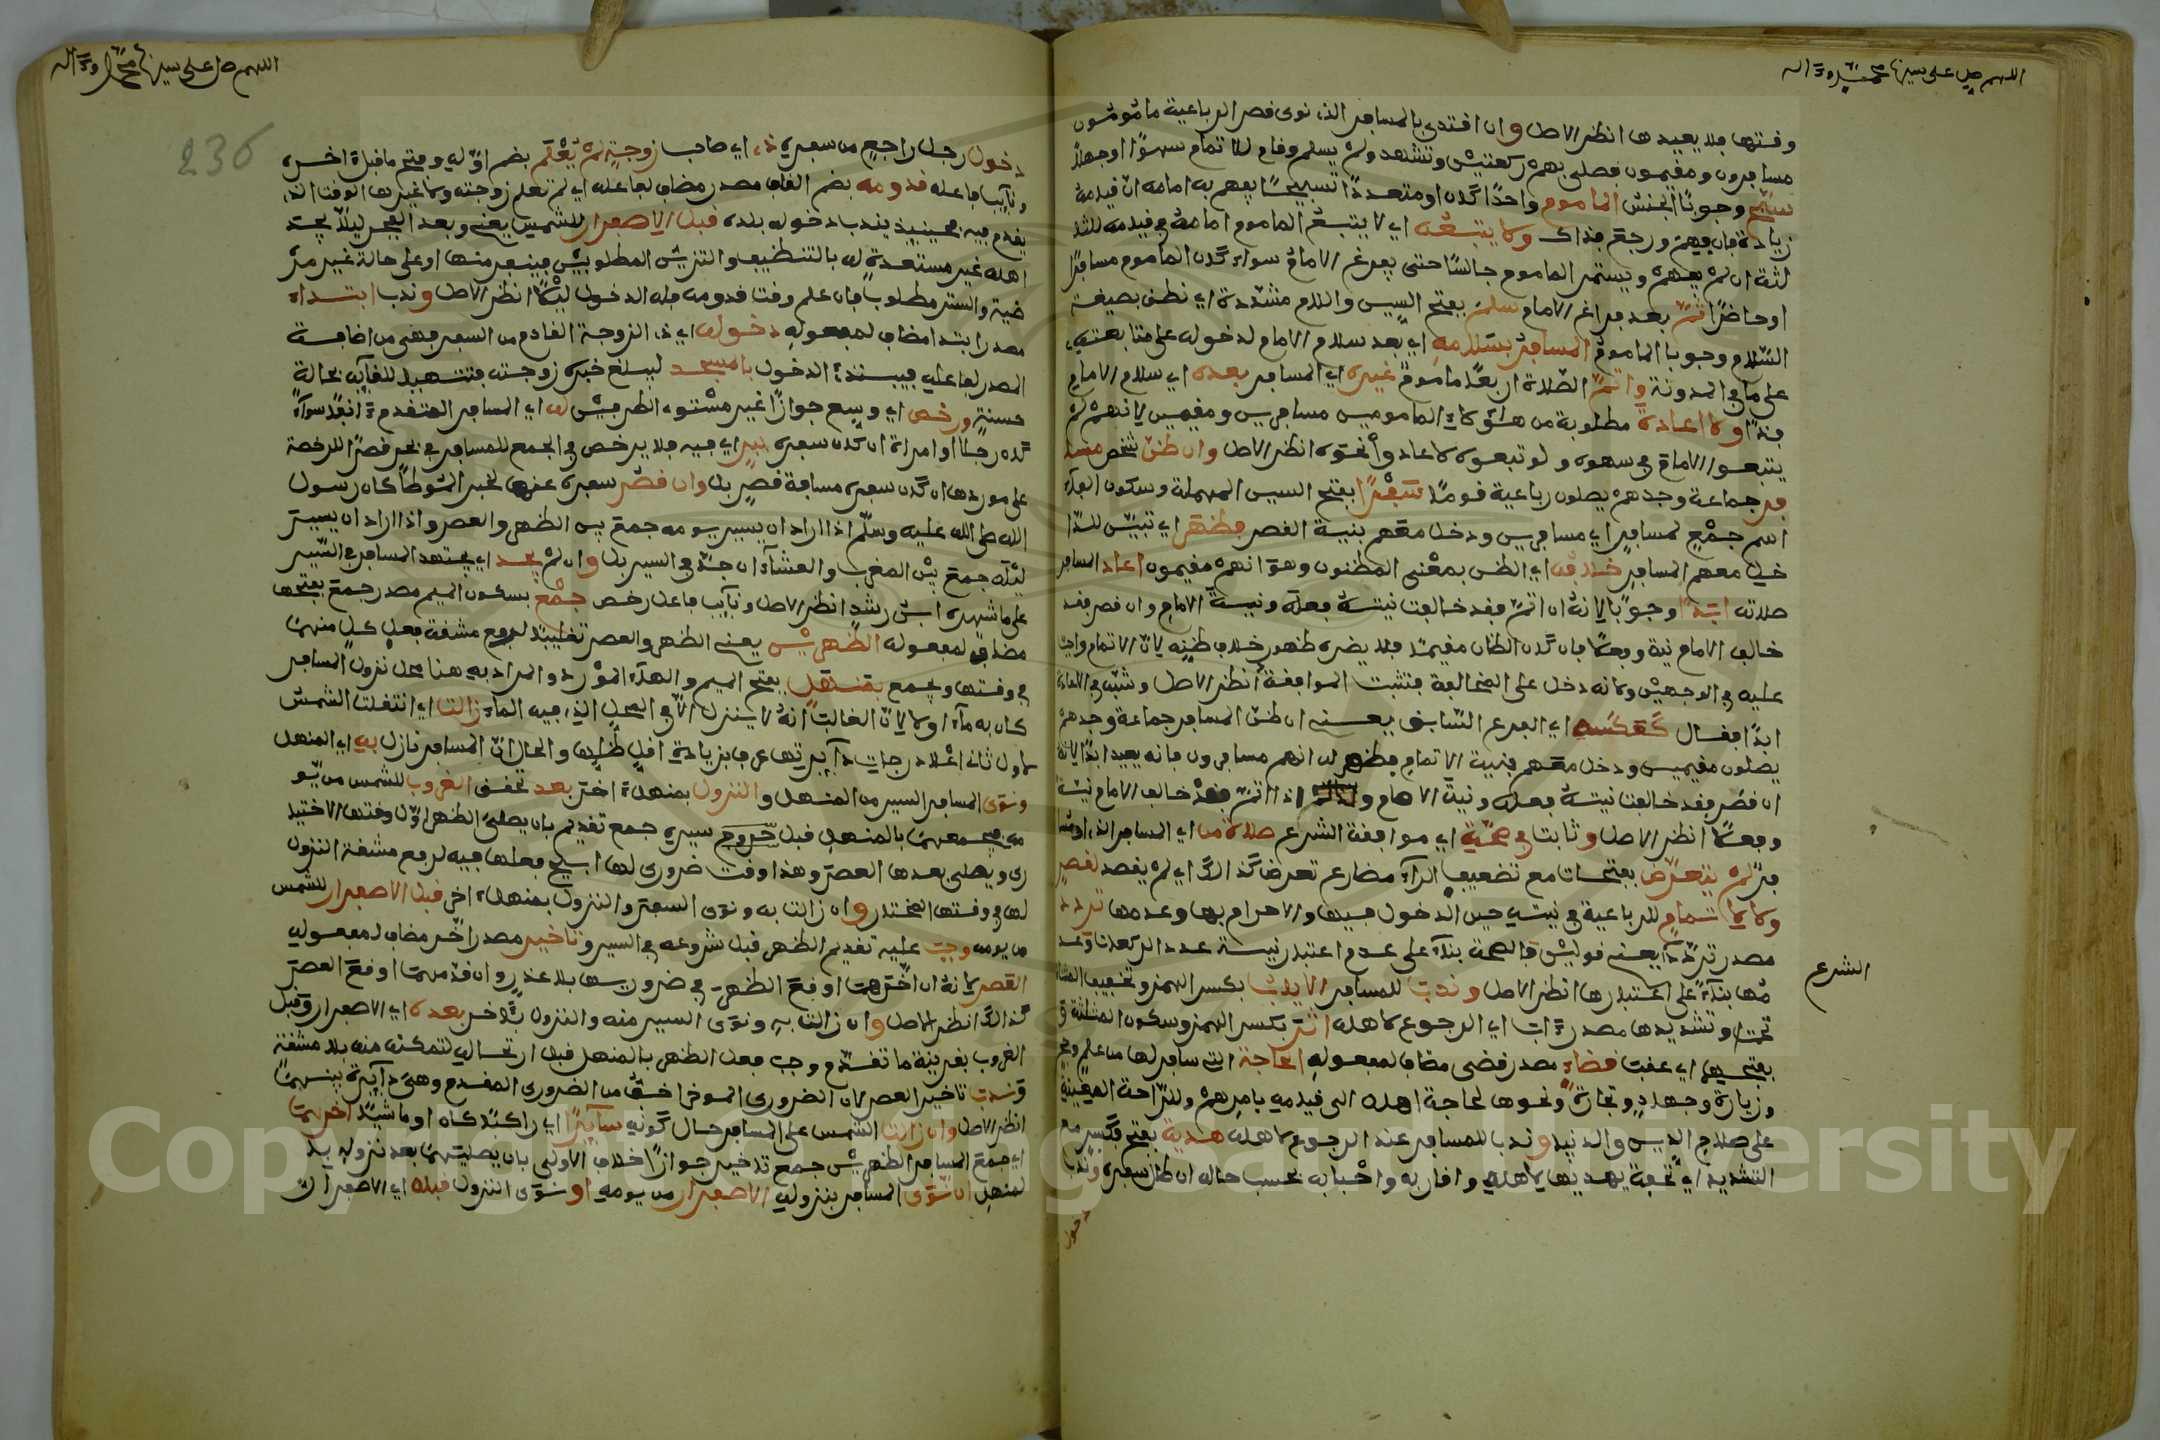 اللهم صل على سيدنا محمد وءاله
وقتها فلا يعيدها انظر الاصل وان اقتدى بالمسافر الذى نوى قصر الرباعية مأمومون
مسافرون ومقيمون فصلى بهم ركعتين وتشهد ولم يسلم وقام للاتمام سهوًا او جهلا
سبح وجوبًا الجنس الماموم واحدًا كان او متعددًا تسبيحًا يفهم به امامه ان قيامه
زيادة فان فهم ورجع فذاك ولا يتبعه اي لا يتبع الماموم امامه في قيامه للثا
لثة ان لم يفهم ويستمر الماموم جالسًا حتى يفرغ الامام سواء كان الماموم مسافرًا
او حاضرًا ثم بعد فراغ الامام سلم بفتح السين واللام مشددة اي نطق بصيغة
السلام وجوبا الماموم المسافر بسلامه اي بعد سلام الامام لدخوله على متابعته
على ما في المدونة واتم الصلاة اربعًا ماموم غيره اي المسافر بعده اي سلام الامام
فذًا ولا اعادة مطلوبة من هؤلاء المامومين مسافرين ومقيمين لانهم لم
يتبعوا الامام في سهوه ولو تبعوه لاعادوا نحوه انظر الاصل وان ظن شخص مسا
فر جماعة وجدهم يصلون رباعية قومًا سَفْرًا بفتح السين المهملة وسكون الفاء
اسم جمع لمسافر اي مسافرين ودخل معهم بنية القصر فظهر اي تبين للدا
خل معهم المسافر خلافه اي الظن بمعنى المظنون وهو انهم مقيمون اعاد المسافر
صلاته ابدًا وجوبًا لانه ان اتم فقد خالفت نيته فعله ونية الامام وان قصر فقد
خالف الامام نية وفعلا فان كان الظان مقيمًا فلا يضره ظهور خلاف ظنه لان الاتمام واجب
عليه في الوجهين ولانه دخل على المخالفة فتثبت الموافقة انظر الاصل وشبه في الاعادة
ابدًا فقال كعكسه اي الفرع السابق يعنى ان ظن المسافر جماعة وجدهم
يصلون مقيمين ودخل معهم بنية الاتمام فظهر له انهم مسافرون فانه يعيد ابدًا لانه
ان قصر فقد خالفت نيته فعله ونية الامام اذا اتم فقد خالف الامام نية
وفعلا انظر الاصل وثابت في صحة اي موافقة الشرع صلاة من اي المسافر الذى
لم يتعرض بفتحات مع تضعيف الراء مضارع تعرض كذالك اي لم يقصد لقصر
ولا لاتمام للرباعية في نيته حين الدخول فيها والاحرام بها وعدمها تردد
مصدر تردد يعنى قولين فالصحة بناء على عدم اعتبار نية عدد الركعات وعد
مها بناء على اعتبارها انظر الاصل وندب للمسافر الاياب بكسر الهمز وتخفيف المثناة
تحت وتشديدها مصدر ءاب اي الرجوع لاهله اثر بكسر الهمز وسكون المثلثة و
بفتحهما اي عقب قضاء مصدر قضى مضاف لمفعوله الحاجة التى سافر لها من علم وحج
وزيارة وجهاد وتجارة ونحوها لحاجة اهله الى قيامه بامرهم وللراحة المعينة
على صلاح الدين والدنيا وندب للمسافر عند الرجوع لاهله هدية بفتح فكسر مع
التشديد اي تحفة يهديها لاهله واقاربه واحبابه بحسب حاله ان طال سفره وندب
دخول
الشرع
اللهم صل على سيدنا محمد وءاله
236
دخول رجل راجع من سفره ذى اي صاحب زوجة لم تعلم بضم اوله وفتح ما قبل ءاخره
ونايب فاعله قدومه بضم القاف مصدر مضاف لفاعله اي لم تعلم زوجته ولا غيرها الوقت الذى
يقدم فيه فحينيذ يندب دخوله بلده قبل الاصفرار للشمس يعنى وبعد الفجر ليلا يجد
اهله غير مستعدة له بالتنظيف والتزين المطلوبين فينفر منها او على حالة غير مر
ضية والستر مطلوب فان علم وقت قدومه فله الدخول ليلا انظر الاصل وندب ابتداء
مصدر ابتدا مضاف لمفعوله دخوله اي ذى الزوجة القادم من السفر فهى من اضافة
المصدر لفاعله فيبتدئ الدخول بالمسجد ليبلغ خبره زوجته فتتهيا للقائه بحالة
حسنة ورخص اي وبيع جوازًا غير مستوى الطرفين له اي المسافر المتقدم ءانفًا سواء
كان رجلا او امراة ان كان سفره ببر اي فيه فلا يرخص في الجمع للمسافر في بحر قصرًا للرخصة
على موردها ان كان سفره مسافة قصر بل وان قصر سفره عنها لخبر الموطا كان رسول
الله صلى الله عليه وسلم اذا اراد ان يسير يومه جمع بين الظهر والعصر واذا اراد ان يسير
ليله جمع بين المغرب والعشاء ان جد في السير بل وان لم يجد اي يجتهد المسافر في السير
على ما شهره ابن رشد انظر الاصل ونايب فاعل رخص جمع بسكون الميم مصدر جمع بفتحها
مضاف لمفعوله الظهرين يعنى الظهر والعصر تغليبًا لرفع مشقة فعل كل منهما
في وقتها ويجمع بمنهل بفتح الميم والهاء المورد والمراد به هنا محل نزول المسافر
كان به ماء او لا لان الغالب انه لا ينزل الا في المحل الذى فيه الماء زالت اي انتقلت الشمس
لاول ثانى اعلا درجات دائرتها عرفا بزيادة اقل ظلها والحال ان المسافر نازل به اي المنهل
ونوى المسافر السير من المنهل والنزول بمنهل ءاخر بعد تحقق الغروب للشمس من يو
مه فيجمعهما بالمنهل قبل خروج سيره جمع تقديم بان يصلى الظهر اول وقتها الاختيا
رى ويصلى بعدها العصر وهذا وقت ضرورى لها ابيح فعلها فيه لرفع مشقة النزول
لها في وقتها المختار وان زالت به ونوى السفر والنزول بمنهل ءاخر قبل الاصفرار للشمس
من يومه وجب عليه تقديم الظهر قبل شروعه في السير وتاخير مصدر اخر مضاف لمفعوله
العصر لانه ان اخرهما اوقع الظهر في ضروريها بلا عذر وان قدمهما اوقع العصر
كذالك انظر الاصل وان زالت به ونوى السير منه والنزول بئاخر بعده اي الاصفرار وقبل
الغروب بقرينة ما تقدم وجب فعل الظهر بالمنهل قبل ارتحاله لتمكنه منه بلا مشقة
وندب تاخير العصر لان الضرورى الموخر اخف من الضرورى المقدم وهى دايرة بينهما
انظر الاصل وان زالت الشمس على المسافر حال كونه سائرًا اي راكبًا كان او ماشيًا اخرهما
اي جمع المسافر الظهرين جمع تاخير جوازًا خلاف الاولى بان يصليهما بعد نزوله با
لمنهل ان نوى المسافر بنزوله الاصفرار من يومه او نوى النزول قبله اي الاصفرار لان
Copyright © King Saud University